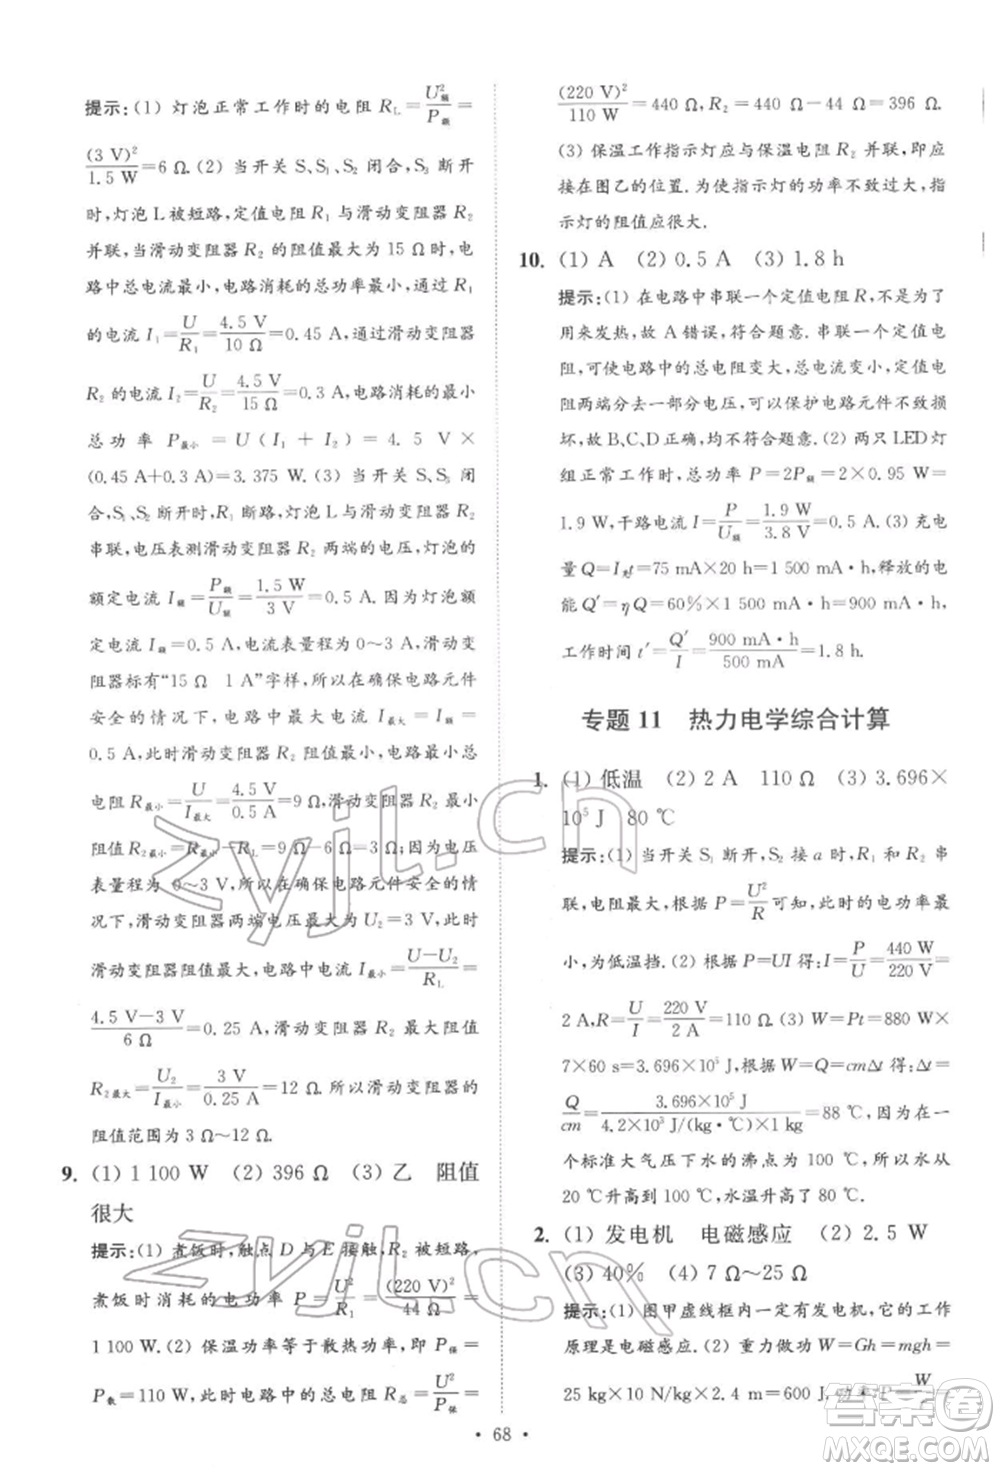 提示:(1) 灯泡正常工作时的电阻 R_L=U²额/P额=
(3 V)²/1.5 W=6 Ω.(2) 当开关 S、S₁、S₂ 闭合,S₃ 断开
时,灯泡 L 被短路,定值电阻 R₁ 与滑动变阻器 R₂
并联,当滑动变阻器 R₂ 的阻值最大为 15 Ω时,电
路中总电流最小,电路消耗的总功率最小,通过 R₁
的电流 I₁=U/R₁=4.5 V/10 Ω=0.45 A,通过滑动变阻器
R₂ 的电流 I₂=U/R₂=4.5 V/15 Ω=0.3 A,电路消耗的最小
总功率 P最小=U(I₁+I₂)=4.5 V×
(0.45 A+0.3 A)=3.375 W.(3) 当开关 S、S₃ 闭
合,S₁、S₂ 断开时,R₁ 断路,灯泡 L 与滑动变阻器 R₂
串联,电压表测滑动变阻器 R₂ 两端的电压,灯泡的
额定电流 I额=P额/U额=1.5 W/3 V=0.5 A.因为灯泡额
定电流 I额=0.5 A,电流表量程为 0～3 A,滑动变
阻器标有“15 Ω 1 A”字样,所以在确保电路元件
安全的情况下,电路中的最大电流 I最大=I额=
0.5 A,此时滑动变阻器 R₂ 阻值最小,电路最小总
电阻 R最小=U/I最大=4.5 V/0.5 A=9 Ω,滑动变阻器最小
阻值 R₂最小=R最小-R_L=9 Ω-6 Ω=3 Ω;因为电压
表量程为 0～3 V,所以在确保电路元件安全的情
况下,滑动变阻器两端电压最大为 U₂=3 V,此时
滑动变阻器阻值最大,电路中电流 I最小=U-U₂/R_L=
4.5 V-3 V/6 Ω=0.25 A,滑动变阻器 R₂ 最大阻值
R₂最大=U₂/I最小=3 V/0.25 A=12 Ω.所以滑动变阻器 R₂
阻值范围为 3 Ω～12 Ω.
9. (1) 1 100 W (2) 396 Ω (3) 乙 阻值
很大
提示:(1) 煮饭时,触点 D 与 E 接触,R₂ 被短路,
煮饭时消耗的电功率 P=U²/R₁=(220 V)²/44 Ω=
1 100 W.(2) 保温功率等于散热功率,即 P保=
P散=110 W,此时电路中的总电阻 R总=U²/P保=
(220 V)²/110 W=440 Ω,R₂=440 Ω-44 Ω=396 Ω.
(3) 保温工作指示灯应与保温电阻 R₂ 并联,即应
接在图乙的位置.为使指示灯的功率不过大,指
示灯的阻值应很大.
10. (1) A (2) 0.5 A (3) 1.8 h
提示:(1) 在电路中串联一个定值电阻 R,不是为了
用来发热,故 A 错误,符合题意.串联一个定值电
阻,可以使电路中的总电阻变大,总电流变小,定值电
阻两端分去一部分电压,可以保护电路元件不致损
坏,故 B、C、D 正确,均不符合题意.(2) 两只 LED 灯
组正常工作时,总功率 P=2P额=2×0.95 W=
1.9 W,干路电流 I=P/U额=1.9 W/3.8 V=0.5 A.(3) 充电
量 Q=I充t=75 mA×20 h=1 500 mA·h,释放的电
能 Q′=ηQ=60%×1 500 mA·h=900 mA·h,
工作时间 t′=Q′/I=900 mA·h/500 mA=1.8 h.
专题 11 热力电学综合计算
1. (1) 低温 (2) 2 A 110 Ω (3) 3.696×
10⁵ J 80 ℃
提示:(1) 当开关 S₁ 断开,S₂ 接 a 时,R₁ 和 R₂ 串
联,电阻最大,根据 P=U²/R 可知,此时的电功率最
小,为低温挡.(2) 根据 P=UI 得:I=P/U=440 W/220 V=
2 A,R=U/I=220 V/2 A=110 Ω.(3) W=Pt=880 W×
7×60 s=3.696×10⁵ J,根据 W=Q=cmΔt 得:Δt=
Q/cm=3.696×10⁵ J/4.2×10³ J/(kg·℃)×1 kg=88 ℃.因为在一
个标准大气压下水的沸点为 100 ℃,所以水从
20 ℃升高到 100 ℃,水温升高了 80 ℃.
2. (1) 发电机 电磁感应 (2) 2.5 W
(3) 40% (4) 7 Ω～25 Ω
提示:(1) 图甲虚线框内一定有发电机,它的工作
原理是电磁感应.(2) 重力做功 W=Gh=mgh=
25 kg×10 N/kg×2.4 m=600 J,功率 P=W/
· 68 ·
zyjl.cn
zyjl.cn
答案圈
MXQE.COM